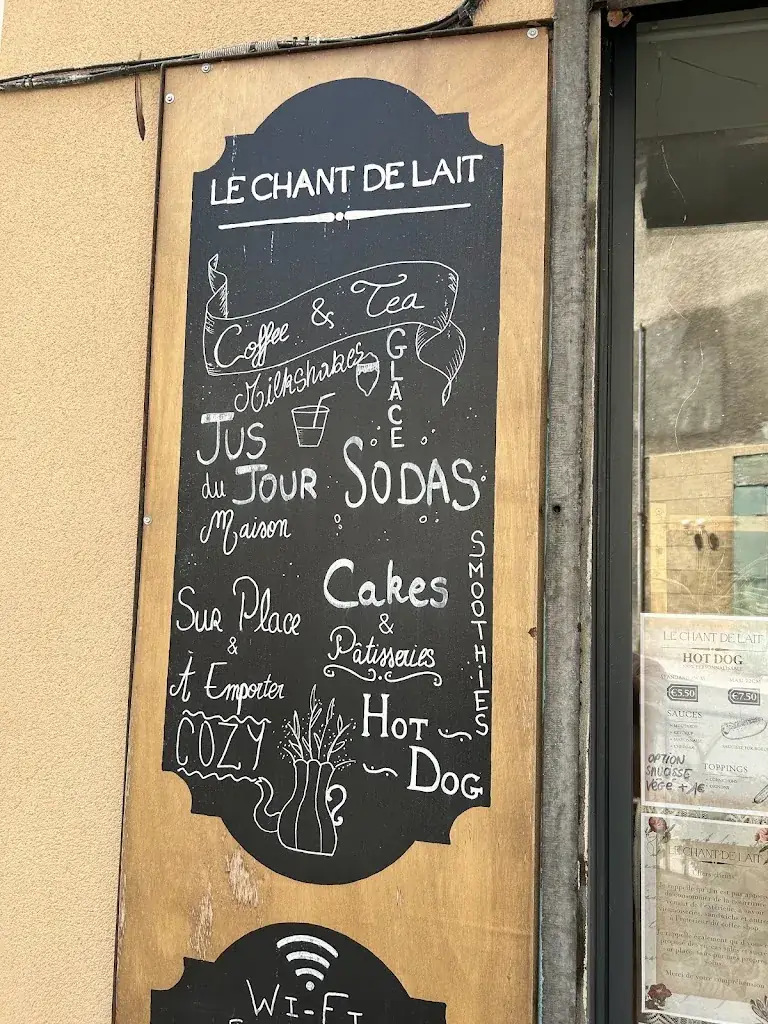 LE CHANT DE LAIT
Coffee & Tea
Milkshakes
GLACE
JUS
du JOUR
Maison
SODAS
SMOOTHIES
Cakes
&
Pâtisseries
Sur Place
&
À Emporter
COZY
HOT
DOG
WI-FI
LE CHANT DE LAIT
HOT DOG
€5.50
€7.50
SAUCES
TOPPINGS
OPTION
SAUCISSE
VÉGÉ + 1€
LE CHANT DE LAIT
Merci de votre compréhension